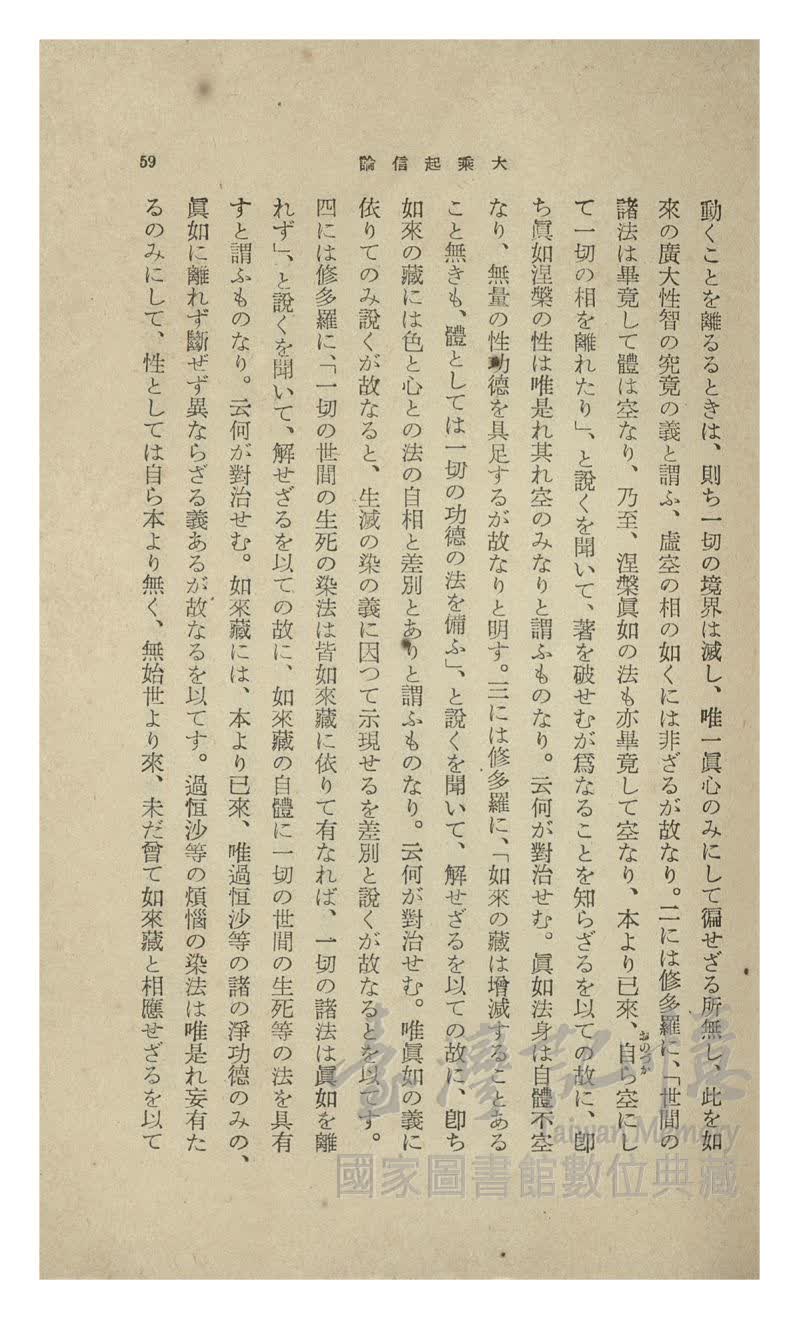 大乘起信論
59
動くことを離るるときは、則ち一切の境界は滅し、唯一眞心のみにして徧せざる所無し、此を如
來の廣大性智の究竟の義と謂ふ、虛空の相の如くには非ざるが故なり。二には修多羅に、「世間の
諸法は畢竟して體は空なり、乃至、涅槃眞如の法も亦畢竟して空なり、本より已來、自ら空にし
おのづか
て一切の相を離れたり」、と說くを聞いて、著を破せむが爲なることを知らざるを以ての故に、卽
ち眞如涅槃の性は唯是れ其れ空のみなりと謂ふものなり。云何が對治せむ。眞如法身は自體不空
なり、無量の性功德を具足するが故なりと明す。三には修多羅に、「如來の藏は增減することある
こと無きも、體としては一切の功德の法を備ふ」、と說くを聞いて、解せざるを以ての故に、卽ち
如來の藏には色と心との法の自相と差別とありと謂ふものなり。云何が對治せむ。唯眞如の義に
依りてのみ說くが故なると、生滅の染の義に因つて示現せるを差別と說くが故なるとを以てす。
四には修多羅に、「一切の世間の生死の染法は皆如來藏に依りて有なれば、一切の諸法は眞如を離
れず」、と說くを聞いて、解せざるを以ての故に、如來藏の自體に一切の世間の生死等の法を具有
すと謂ふものなり。云何が對治せむ。如來藏には、本より已來、唯過恒沙等の諸の淨功德のみの、
眞如に離れず斷ぜず異ならざる義あるが故なるを以てす。過恒沙等の煩惱の染法は唯是れ妄有た
るのみにして、性としては自ら本より無く、無始世より來、未だ曾て如來藏と相應せざるを以て
臺灣記憶
Taiwan Memory
國家圖書館數位典藏